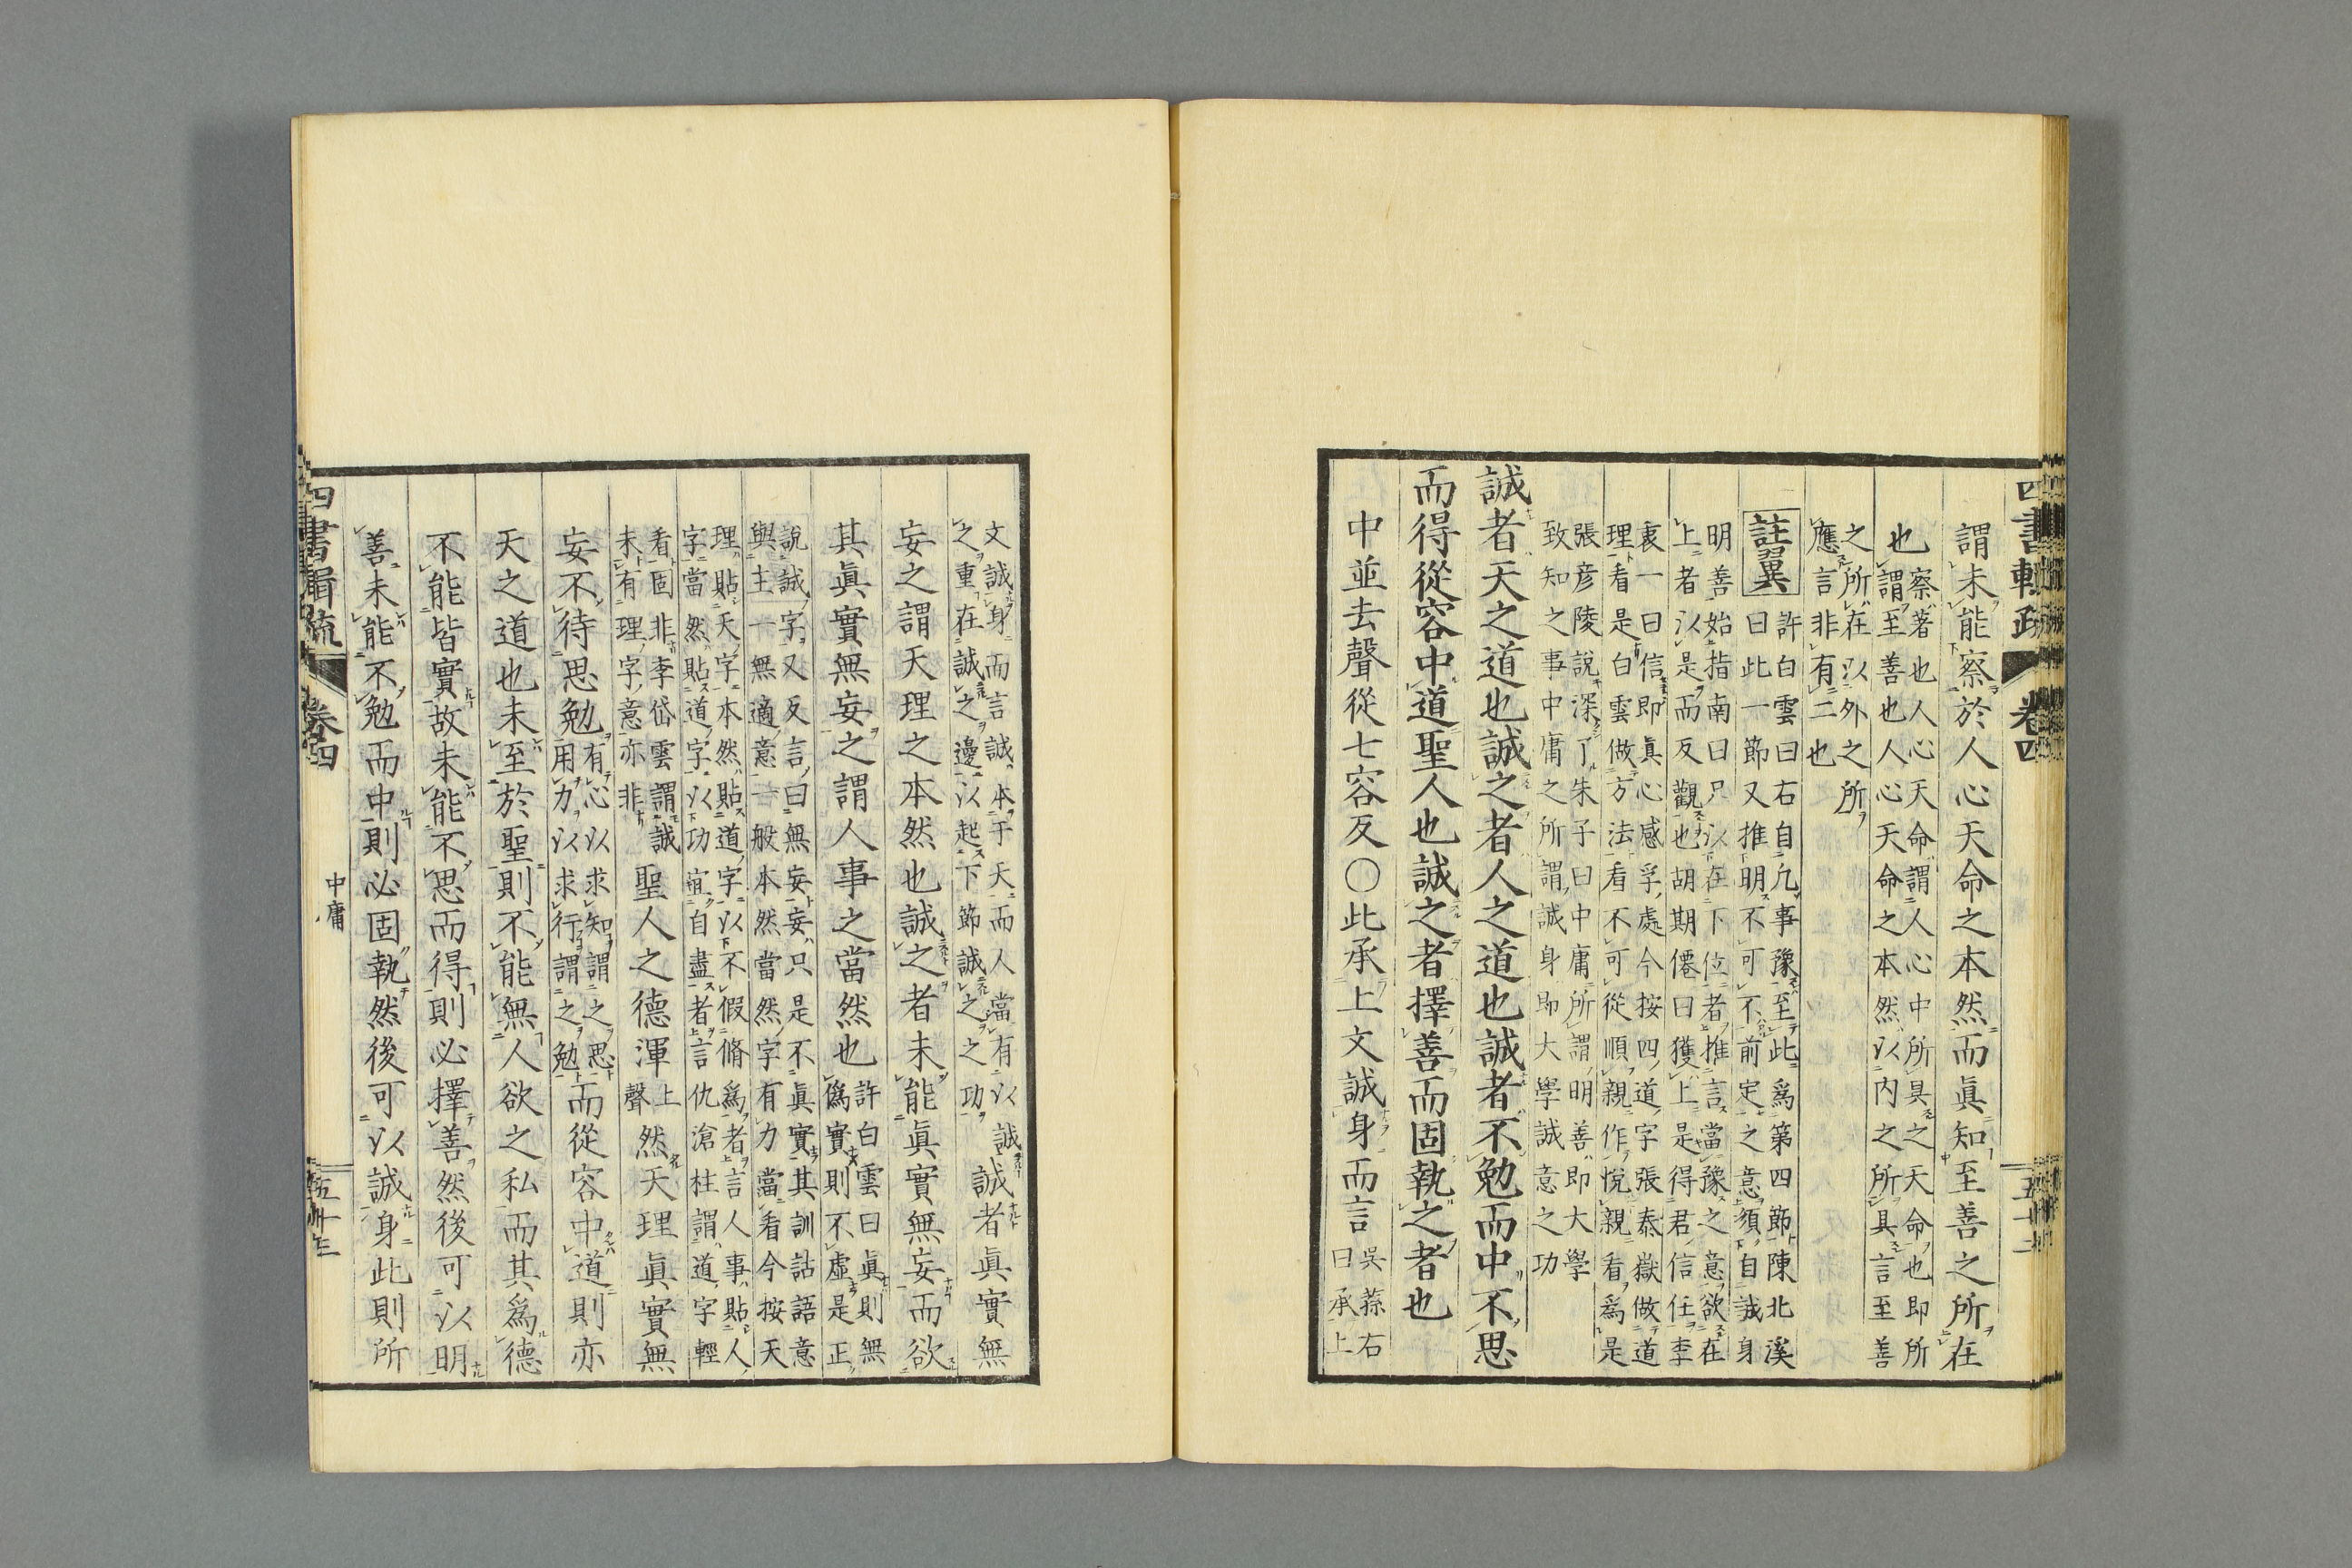 四書輯疏 卷四
謂未能察於人心天命之本然而眞知至善之所在
也 察著也人心天命謂人心中所具之天命也即所
謂至善也人心天命之本然以内之所具言至善
之所在以外之所
應言非有二也
註翼 許白雲曰右自凡事豫至此爲第四節陳北溪
曰此一節又推明不可不前定之意須自誠身
明善始指南曰只以在下位者推言當豫之意欲在
上者以是而反觀也胡期僊曰獲上是得君信任李
衷一曰信即眞心感孚處今按四道字張泰嶽做道
理看是白雲做方法看不可從順親作悅親看爲是
張彦陵說深了朱子曰中庸所謂明善即大學
致知之事中庸之所謂誠身即大學誠意之功
誠者天之道也誠之者人之道也誠者不勉而中不思
而得從容中道聖人也誠之者擇善而固執之者也
中並去聲從七容反○此承上文誠身而言 吳蓀右
曰承上
文誠身而言誠本于天而人當有以誠
之重在誠之邊以起下節誠之之功 誠者眞實無
妄之謂天理之本然也誠之者未能眞實無妄而欲
其眞實無妄之謂人事之當然也 許白雲曰眞則無
僞實則不虛是正
說誠字又反言曰無妄妄只是不眞實其訓詁語意
與主一無適意一般本然當然字有力當看今按天
理貼天字本然貼道字以不假脩爲者言人事貼人
字當然貼道字以功宜自盡者言仇滄柱謂道字輕
看固非李岱雲謂誠
未有理字意亦非 聖人之德渾 上
聲 然天理眞實無
妄不待思勉 有心以求知謂之思
用力以求行謂之勉 而從容中道則亦
天之道也未至於聖則不能無人欲之私而其爲德
不能皆實故未能不思而得則必擇善然後可以明
善未能不勉而中則必固執然後可以誠身此則所
四書輯疏 卷四 中庸 五十三